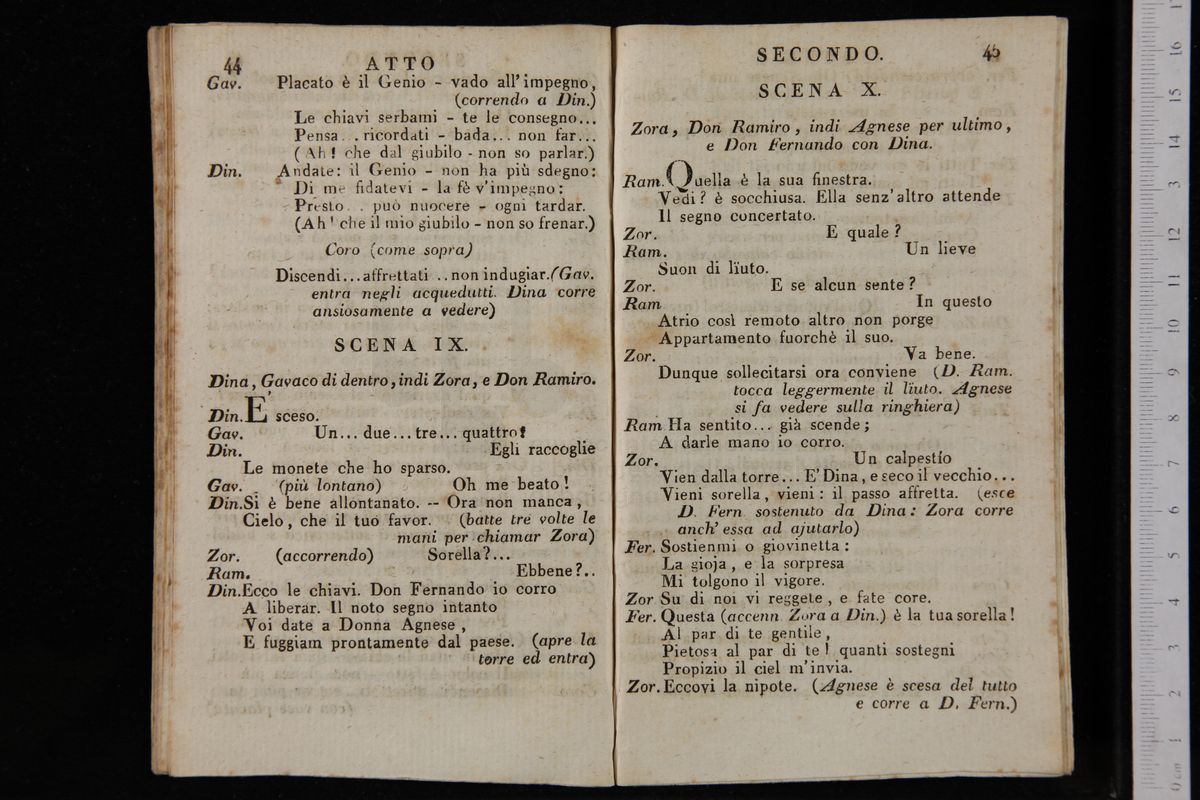 44 ATTO
Gav. Placato è il Genio - vado all' impegno,
(correndo a Din.)
Le chiavi serbami - te le consegno...
Pensa... ricordati - bada... non far...
(Ah! che dal giubilo - non so parlar.)
Din. Andate: il Genio - non ha più sdegno:
Di me fidatevi - la fè v'impegno:
Presto... può nuocere - ogni tardar.
(Ah! che il mio giubilo - non so frenar.)
Coro (come sopra)
Discendi... affrettati .. non indugiar. (Gav.
entra negli acquedutti. Dina corre
ansiosamente a vedere)
SCENA IX.
Dina, Gavaco di dentro, indi Zora, e Don Ramiro.
Din. E' sceso.
Gav. Un... due... tre... quattro!
Din. Egli raccoglie
Le monete che ho sparso.
Gav. (più lontano) Oh me beato!
Din. Si è bene allontanato. -- Ora non manca,
Cielo, che il tuo favor. (batte tre volte le
mani per chiamar Zora)
Zor. (accorrendo) Sorella?...
Ram. Ebbene?..
Din. Ecco le chiavi. Don Fernando io corro
A liberar. Il noto segno intanto
Voi date a Donna Agnese,
E fuggiam prontamente dal paese. (apre la
torre ed entra)
SECONDO. 45
SCENA X.
Zora, Don Ramiro, indi Agnese per ultimo,
e Don Fernando con Dina.
Ram. Quella è la sua finestra.
Vedi? è socchiusa. Ella senz'altro attende
Il segno concertato.
Zor. E quale?
Ram. Un lieve
Suon di lïuto.
Zor. E se alcun sente?
Ram In questo
Atrio così remoto altro non porge
Appartamento fuorchè il suo.
Zor. Va bene.
Dunque sollecitarsi ora conviene (D. Ram.
tocca leggermente il lïuto. Agnese
si fa vedere sulla ringhiera)
Ram Ha sentito... già scende;
A darle mano io corro.
Zor. Un calpestío
Vien dalla torre... E' Dina, e seco il vecchio...
Vieni sorella, vieni: il passo affretta. (esce
D. Fern. sostenuto da Dina: Zora corre
anch' essa ad ajutarlo)
Fer. Sostienmi o giovinetta:
La gioja, e la sorpresa
Mi tolgono il vigore.
Zor Su di noi vi reggete, e fate core.
Fer. Questa (accenn. Zora a Din.) è la tua sorella!
Al par di te gentile,
Pietosa al par di te! quanti sostegni
Propizio il ciel m'invia.
Zor. Eccovi la nipote. (Agnese è scesa del tutto
e corre a D. Fern.)